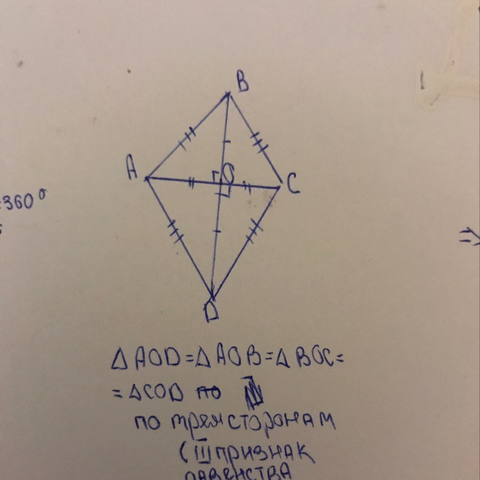 B
A
O
C
360°
⇒
D
△AOD=△AOB=△BOC=
=△COD по
по трем сторонам
(III признак
равенства